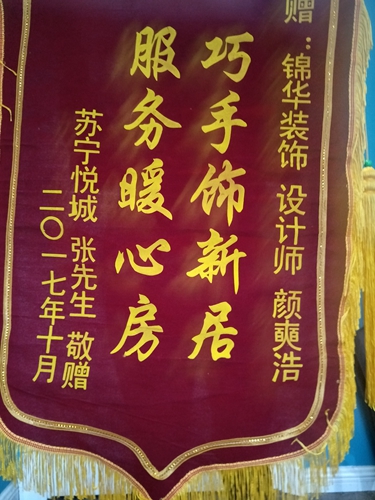 赠：锦华装饰 设计师 颜爽浩
巧手饰新居
服务暖心房
苏宁悦城 张先生 敬赠
二〇一七年十月